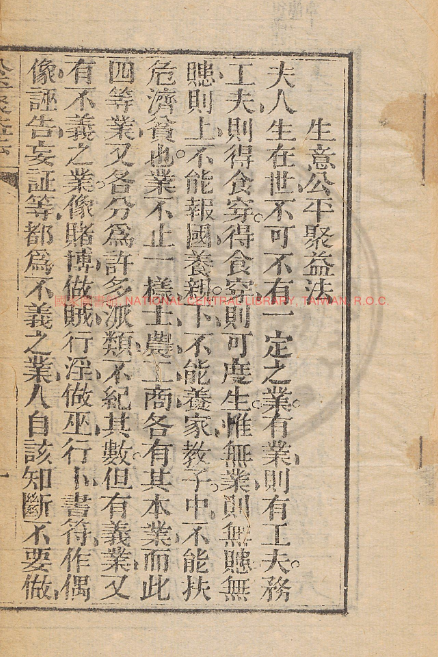 生意公平聚益法
夫人生在世不可不有一定之業有業則有工夫務
工夫則得食穿得食穿則可度生惟無業則無賜無
賜則上不能報國養親下不能養家教子中不能扶
危濟貧也業不止一樣士農工商各有其本業而此
四等業又各分為許多派類不紀其數但有義業又
有不義之業像賭博做賊行淫做巫行卜書符作偶
像誣告妄証等都為不義之業人自該知斷不要做
NATIONAL CENTRAL LIBRARY, TAIWAN, R.O.C.